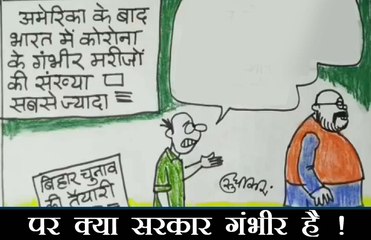 अमेरिका के बाद
भारत में कोरोना
के गंभीर मरीजों
की संख्या
सबसे ज्यादा
बिहार चुनाव
की तैयारी
पर क्या सरकार गंभीर है !